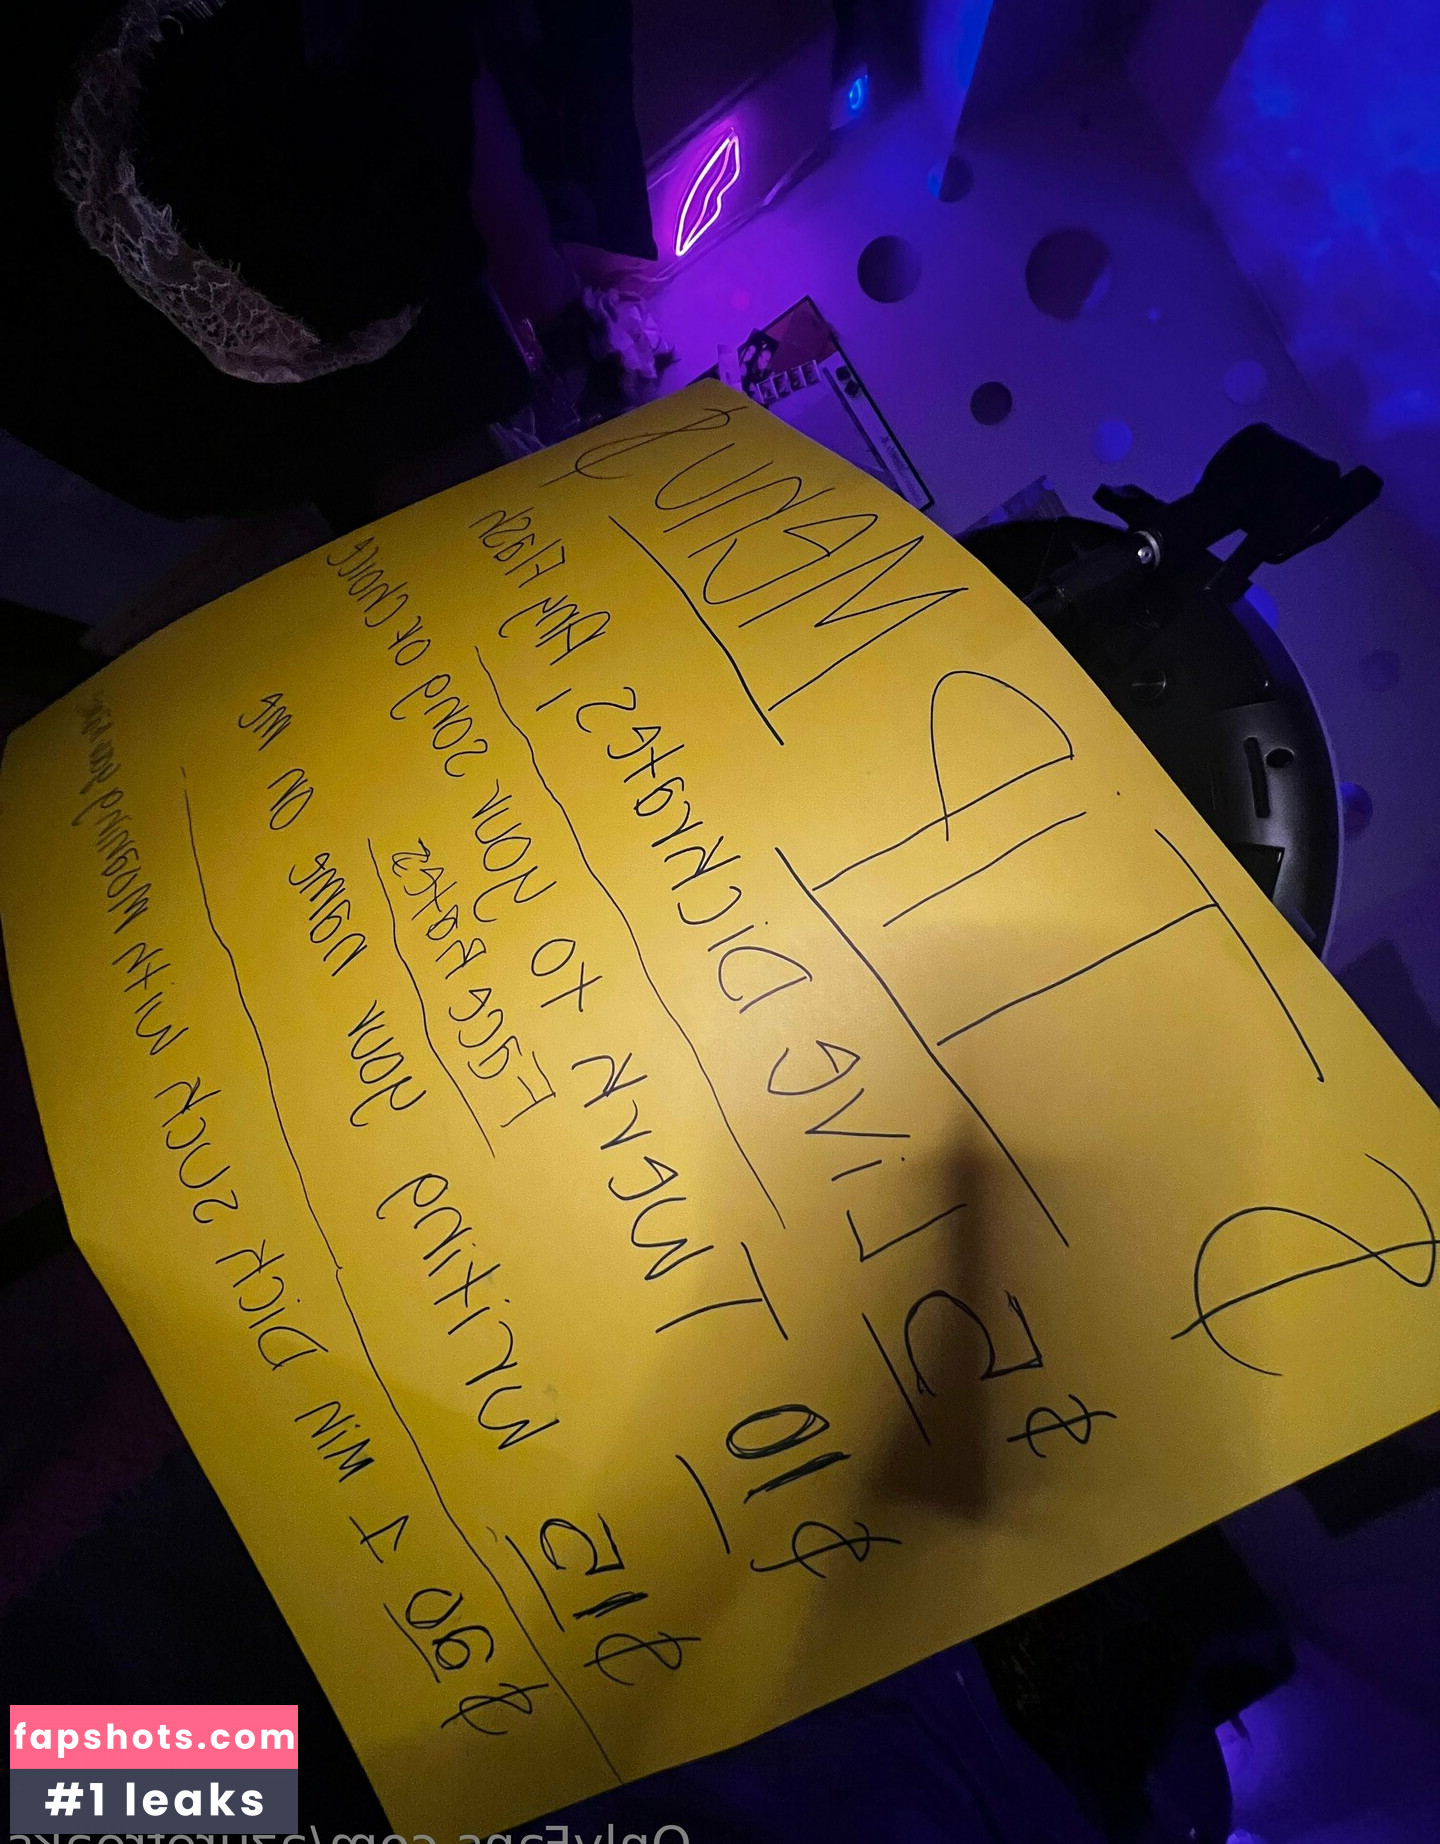 $ TIP MENU $
$5 LiVE DiCKRates / Any Flash
$10 I TWERK to your song of choice
Face Rates
$15 Writing your name on me
Min Dick suck with moaning
fapshots.com
#1 leaks